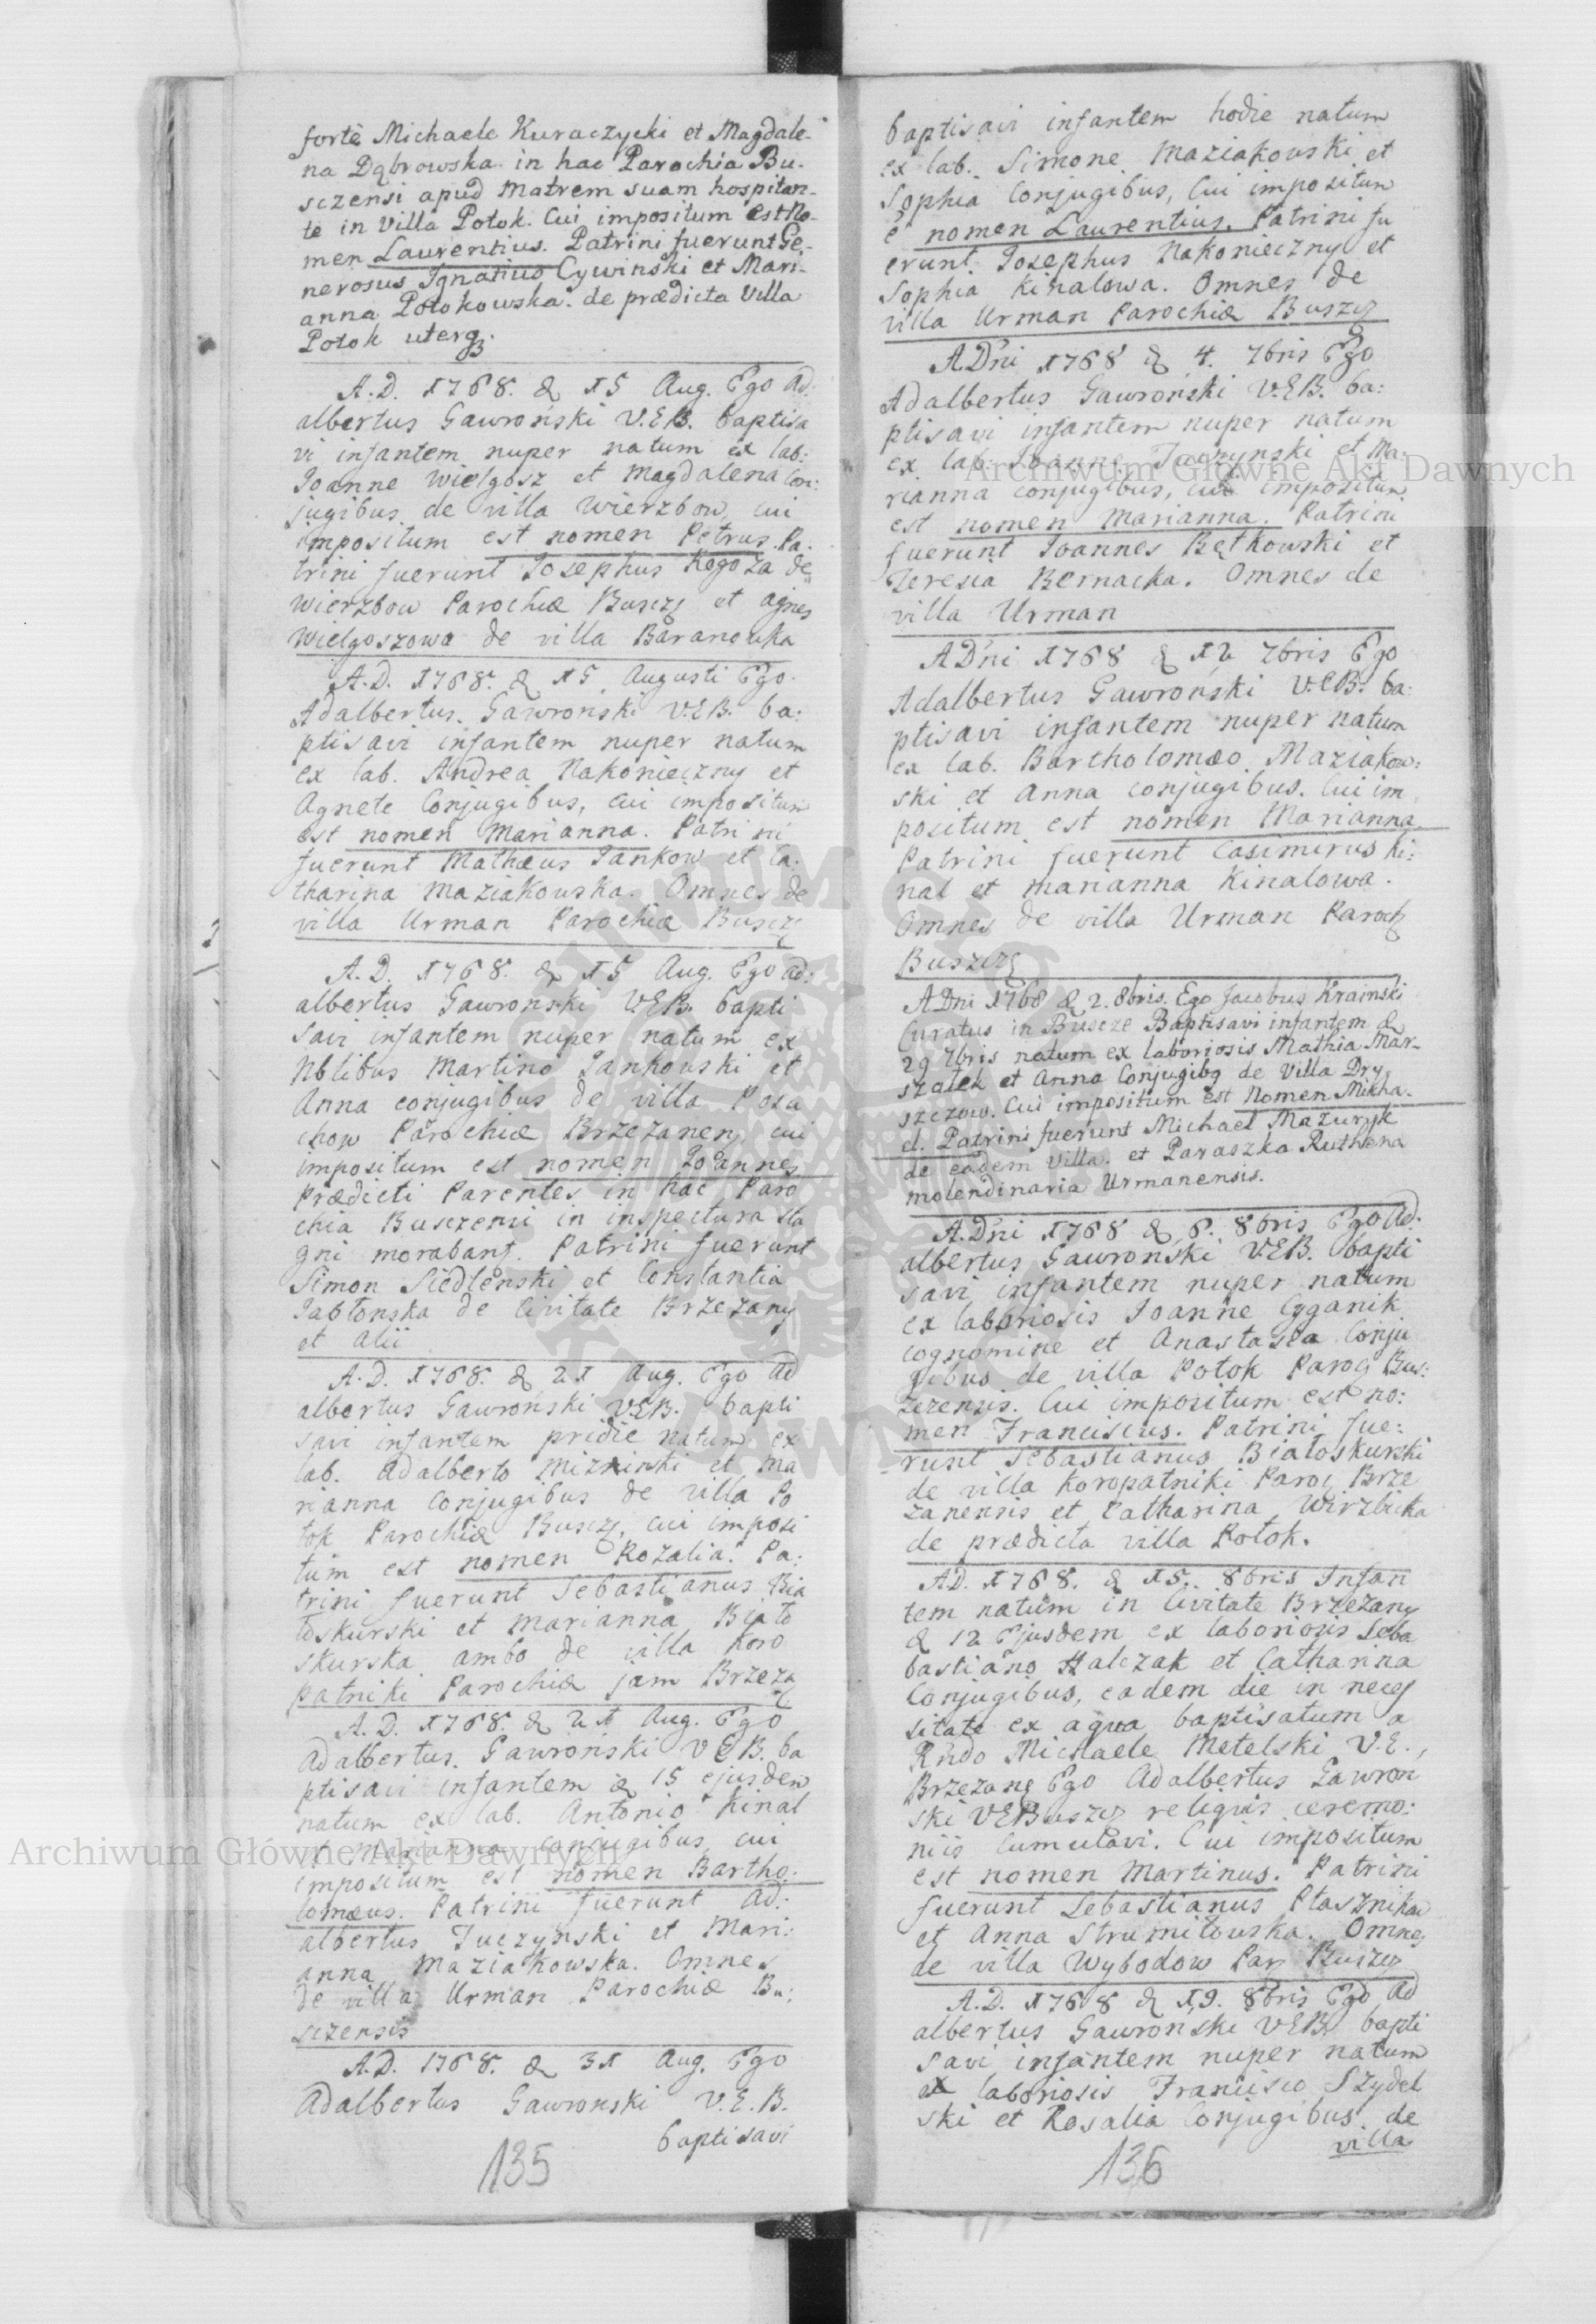 forte Michaele Kuraczycki et Magdale-
na Dąbrowska in hac Parochia Bu-
sczensi apud Matrem suam hospitan-
te in Villa Potok. Cui impositum Est No-
men Laurentius. Patrini fuerunt Ge-
nerosus Ignatius Cywinski et Mari-
anna Potokowska. de prædicta Villa
Potok uterqȝ.
A.D. 1768. d 15 Aug. Ego Ad:
albertus Gawroński V.E.B. baptisa
vi infantem nuper natum ex lab:
Joanne Wielgosz et Magdalena Con:
jugibus de villa Wierzbow, cui
impositum est nomen Petrus. Pa:
trini fuerunt Josephus Rogoza de
Wierzbow Parochiæ Buscz et Agnes
Wielgoszowa de villa Baranowka
A.D. 1768. d 15 Augusti Ego
Adalbertus Gawronski V.E.B. ba:
ptisavi infantem nuper natum
ex lab. Andrea Nakonieczny et
Agnete Conjugibus, cui impositum
est nomen Marianna. Patrini
fuerunt Mathæus Jankow et Ca:
tharina Maziakowska. Omnes de
villa Urman Parochiæ Buscz
A.D. 1768. d 15 Aug. Ego Ad:
albertus Gawronski V.E.B. bapti
savi infantem nuper natum ex
Nblibus Martino Jankowski et
Anna conjugibus de villa Posu
chow Parochiæ Brzezanen, cui
impositum est nomen Joannes
Prædicti Parentes in hac Paro
chia Busczensi in inspectura sta
gni morabant. Patrini fuerunt
Simon Siedleński et Constantia
Jabłonska de Civitate Brzezany
et alii
A.D. 1768. d 21 Aug. Ego Ad
albertus Gawroński V.E.B. bapti
savi infantem pridie natum ex
lab. Adalberto Mizninski et Ma
rianna Conjugibus de villa Po
tok Parochiæ Buscz, cui imposi
tum est nomen Rozalia. Pa:
trini fuerunt Sebastianus Bia
łoskurski et Marianna Biało
skurska ambo de villa Koro
patniki Parochiæ jam Brzeza
A.D. 1768. d 21 Aug. Ego
Adalbertus Gawroński V.E.B. ba
ptisavi infantem d 15 ejusdem
natum ex lab. Antonio Kinal
et Marianna conjugibus, cui
impositum est nomen Bartho:
lomæus. Patrini fuerunt Ad:
albertus Juczynski et Mari:
anna Maziakowska. Omnes
de villa Urman Parochiæ Bu:
sczensis
A.D. 1768. d 31 Aug. Ego
Adalbertus Gawronski V.E.B.
baptisavi
135
baptisavi infantem hodie natum
ex lab. Simone Maziakowski et
Sophia Conjugibus, Cui impositum
e nomen Laurentius. Patrini fu
erunt Josephus Nakonieczny et
Sophia Kinalowa. Omnes de
villa Urman Parochiæ Buszcz
A.Dni 1768 d 4. 7bris Ego
Adalbertus Gawroński V.E.B. ba:
ptisavi infantem nuper natum
ex lab. Joanne Juczynski et Ma:
rianna conjugibus, cui impositum
est nomen Marianna. Patrini
fuerunt Joannes Bętkowski et
Teresia Bernacka. Omnes de
villa Urman
A.Dni 1768 d 12 7bris Ego
Adalbertus Gawroński V.E.B. ba:
ptisavi infantem nuper natum
ex lab. Bartholomæo Maziakow:
ski et Anna conjugibus. Cui im
positum est nomen Marianna
Patrini fuerunt Casimirus Ki:
nal et Marianna Kinalowa.
Omnes de villa Urman Paroch
Buszcz
A Dni 1768 d 2. 8bris. Ego Jacobus Krainski
Curatus in Buscze Baptisavi infantem d
29 7bris natum ex laboriosis Mathia Mar-
szałek et Anna Conjugibq de Villa Dry
szczow. Cui impositum est Nomen Micha-
el. Patrini fuerunt Michael Mazuryk
de eadem Villa. et Paraszka Ruthena
molendinaria Urmanensis.
A.Dni 1768 d 6. 8bris Ego Ad:
albertus Gawroński V.E.B. bapti
savi infantem nuper natum
ex laboriosis Joanne Cyganik
cognomine et Anastasia Conju
gibus de villa Potok Paroc Bus:
zczensis. Cui impositum est no:
men Franciscus. Patrini fue:
runt Sebastianus Białoskurski
de villa Koropatniki Paroc Brze
zanensis et Catharina Wirzbicka
de prædicta villa Potok.
A.D. 1768. d 15. 8bris Infan
tem natum in Civitate Brzezany
d 12 Ejusdem ex laboriosis Seba
bastiano Halczak et Catharina
Conjugibus, eadem die in neces
sitate ex aqua baptisatum a
Rndo Michaele Metelski V.E.,
Brzezan Ego Adalbertus Gawron
ski V E Buszcz reliquis ceremo:
niis cumulavi. Cui impositum
est nomen Martinus. Patrini
fuerunt Sebastianus Ptasznikow
et Anna Strumiłowska. Omnes
de villa Wybodow Par Buszcz
A.D. 1768 d 19. 8bris Ego Ad
albertus Gawronski V.E.B. bapti
savi infantem nuper natum
ex laboriosis Francisco Szydel
ski et Rosalia Conjugibus de
villa
136
Archiwum Główne Akt Dawnych
Archiwum Główne Akt Dawnych